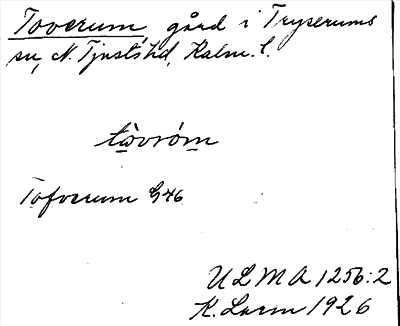 Toverum, gård i Tryserums
sn, N. Tjusts hd, Kalm. l.
tòvróm
Tofverum G46
ULMA 1256:2
K. Larm 1926